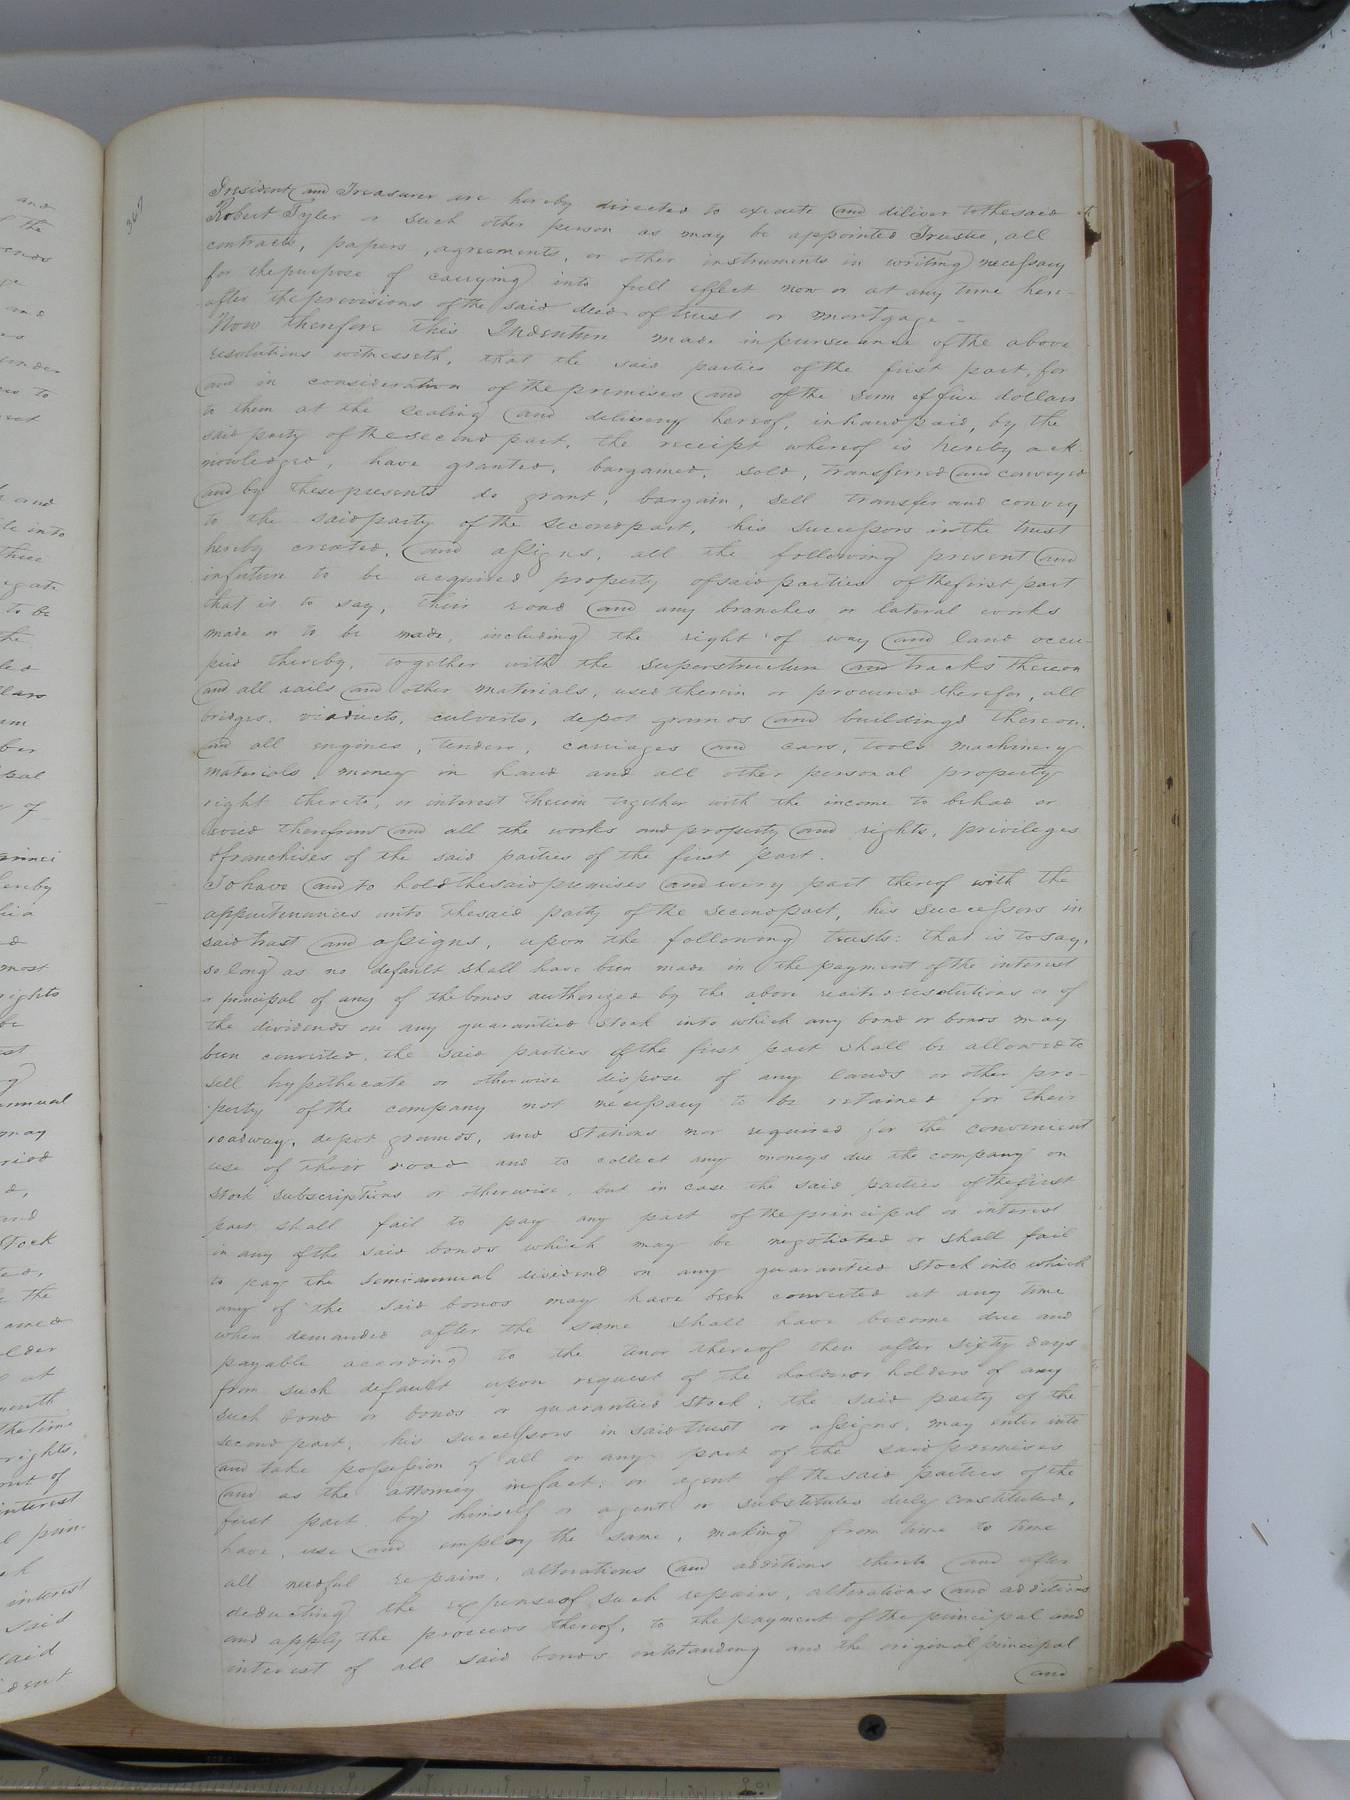 367
President and Treasurer are hereby directed to execute and deliver to the said
Robert Tyler or such other person as may be appointed Trustee, all
contracts, papers, agreements, or other instruments in writing necessary
for the purpose of carrying into full effect now or at any time here-
after the provisions of the said deed of trust or mortgage -
Now therefore this Indenture made in pursuance of the above
resolutions witnesseth, that the said parties of the first part, for
and in consideration of the premises and of the sum of five dollars
to them at the sealing and delivery hereof, in hand paid, by the
said party of the second part, the receipt whereof is hereby ack-
nowledged, have granted, bargained, sold, transferred and conveyed
and by these presents do grant, bargain, sell transfer and convey
to the said party of the second part, his successors in the trust
hereby created, and assigns, all the following present and
in future to be acquired property of said parties of the first part
that is to say, their road and any branches or lateral works
made or to be made, including the right of way and land occu-
pied thereby, together with the superstructure and tracks thereon
and all rails and other materials, used therein or procured therefor, all
bridges, viaducts, culverts, depot grounds and buildings thereon,
and all engines, tenders, carriages and cars, tools machinery
materials, money in hand and all other personal property
right thereto, or interest therein together with the income to be had or
levied therefrom and all the works and property and rights, privileges
& franchises of the said parties of the first part.
To have and to hold the said premises and every part thereof with the
appurtenances unto the said party of the second part, his successors in
said trust and assigns, upon the following trusts: that is to say,
so long as no default shall have been made in the payment of the interest
or principal of any of the bonds authorized by the above recited resolutions or of
the dividends on any guarantied stock into which any bond or bonds may
been converted, the said parties of the first part shall be allowed to
sell hypothecate or otherwise dispose of any lands or other pro-
perty of the company not necessary to be retained for their
roadway, depot grounds, and stations nor required for the convenient
use of their road and to collect any moneys due the company on
stock subscriptions or otherwise, but in case the said parties of the first
part shall fail to pay any part of the principal or interest
in any of the said bonds which may be negotiated or shall fail
to pay the semi annual dividend on any guarantied stock into which
any of the said bonds may have been converted at any time
when demanded after the same shall have become due and
payable according to the tenor thereof then after sixty days
from such default upon request of the holder or holders of any
such bond or bonds or guarantied stock, the said party of the
second part, his successors in said trust or assigns, may enter into
and take possession of all or any part of the said premises
and as the attorney in fact, or agent of the said parties of the
first part by himself or agent or substitutes duly constituted,
have, use and employ the same, making from time to time
all needful repairs, alterations and additions thereto and after
deducting the expense of such repairs, alterations and additions
and apply the proceeds thereof, to the payment of the principal and
interest of all said bonds outstanding and the original principal
and